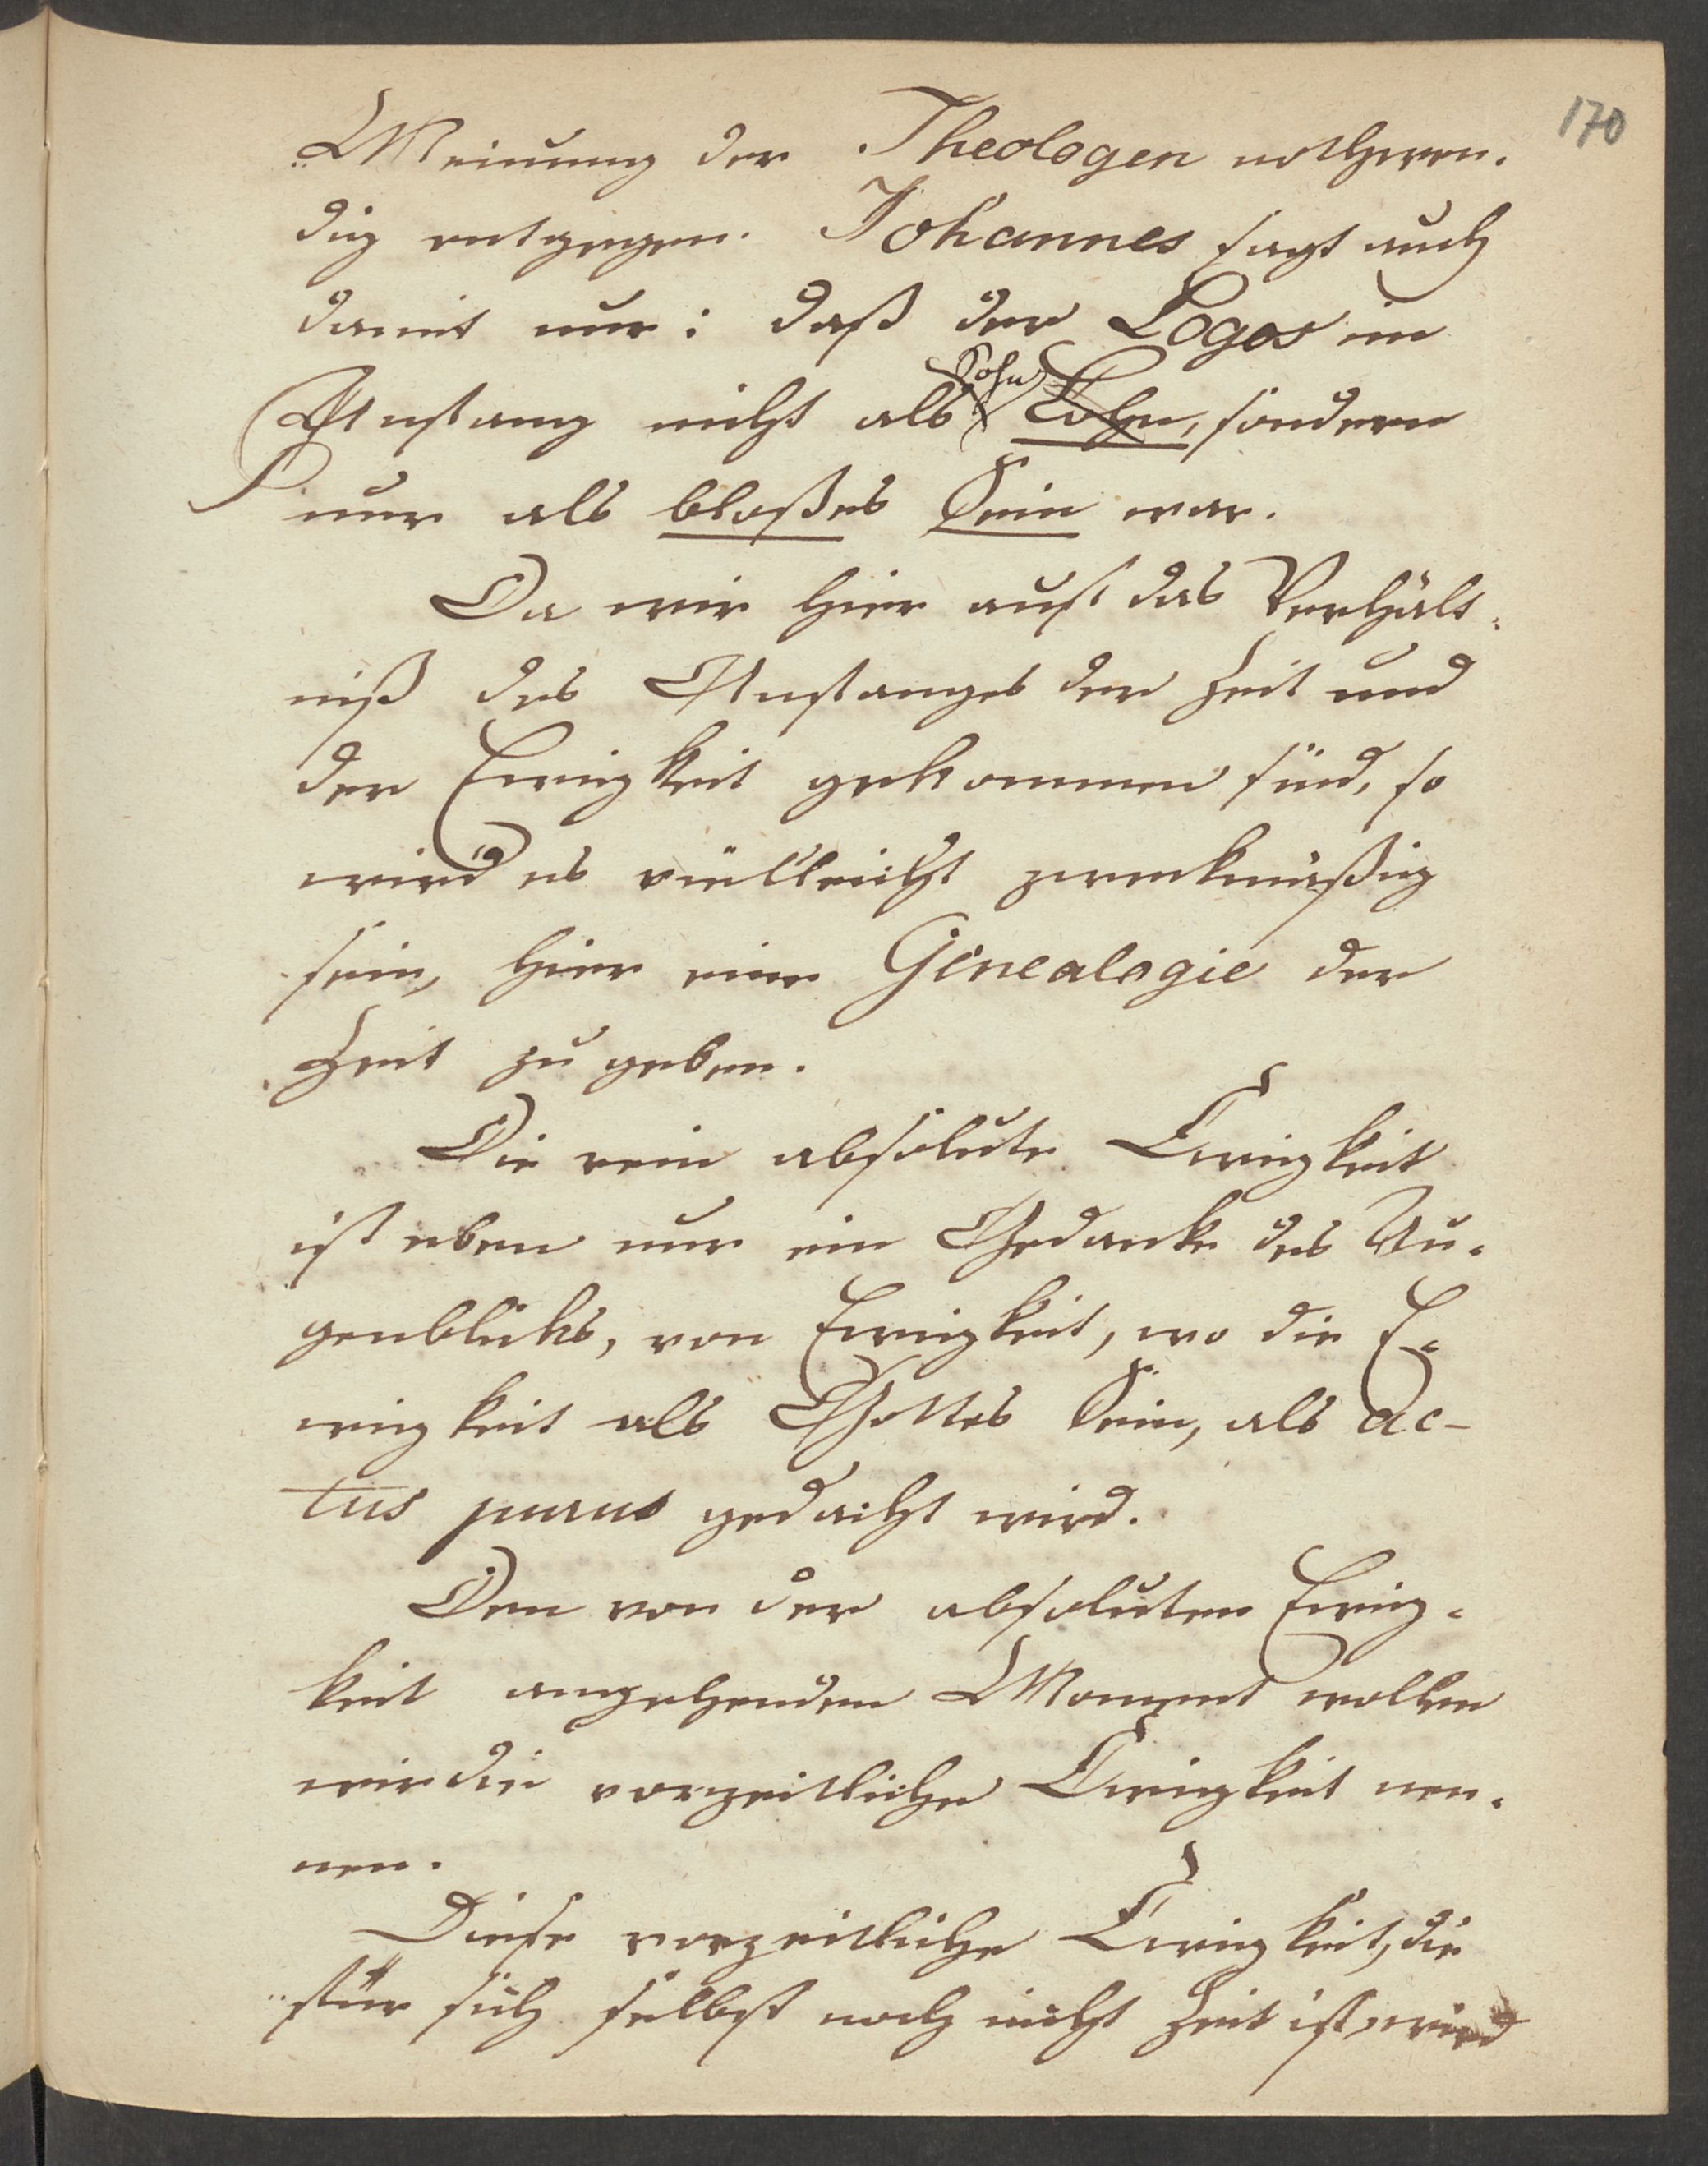 170
Meinung der Theologen nothwen-
dig entgegen. Johannes sagt auch
damit nur: daß der Logos im
Anfang nicht als Sohn, sondern
nur als bloßes Sein war.
Da wir hier auf das Verhält-
niß des Anfanges der Zeit und
der Ewigkeit gekommen sind, so
wird es vielleicht zweckmäßig
sein, hier eine Genealogie der
Zeit zu geben.
Die rein absolute Ewigkeit
ist eben nur ein Gedanke des Au-
genblicks, von Ewigkeit, wo die E-
wigkeit als Gottes Sein, als ac-
tus purus gedacht wird.
Den von der absoluten Ewig-
keit angehenden Moment wollen
wir die vorzeitliche Ewigkeit nen-
nen.
Diese vorzeitliche Ewigkeit, die
für sich selbst noch nicht Zeit ist, wird